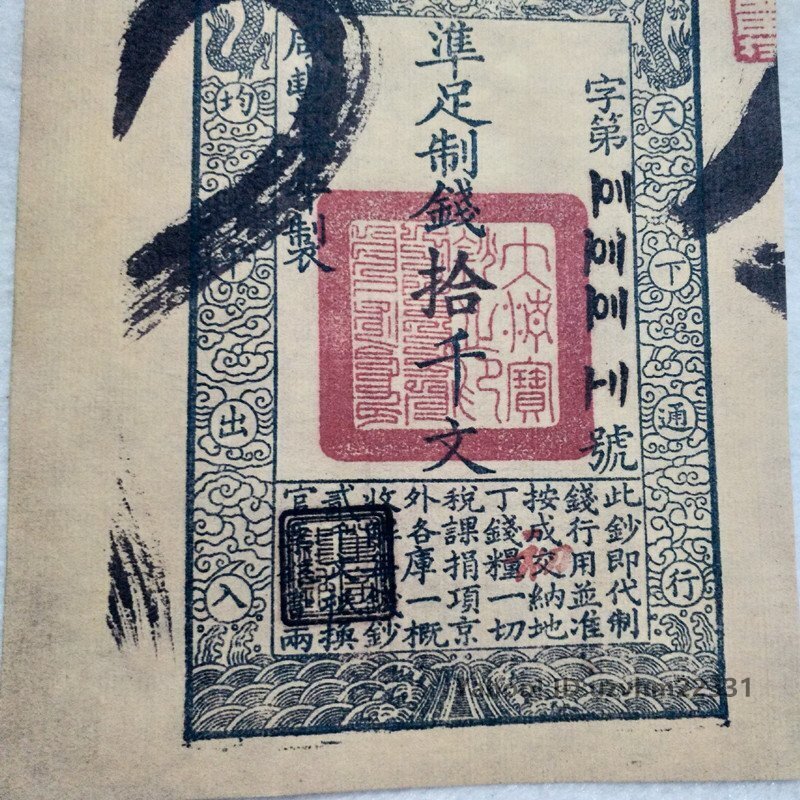 天下通行
字第
號
準足制錢拾千文
年製
均平出入
大清寶鈔之印
此鈔即代制
錢行用並准
按成交納地
丁錢糧一切
稅課捐項京
外各庫一概
收鈔
貳千文換
官兩